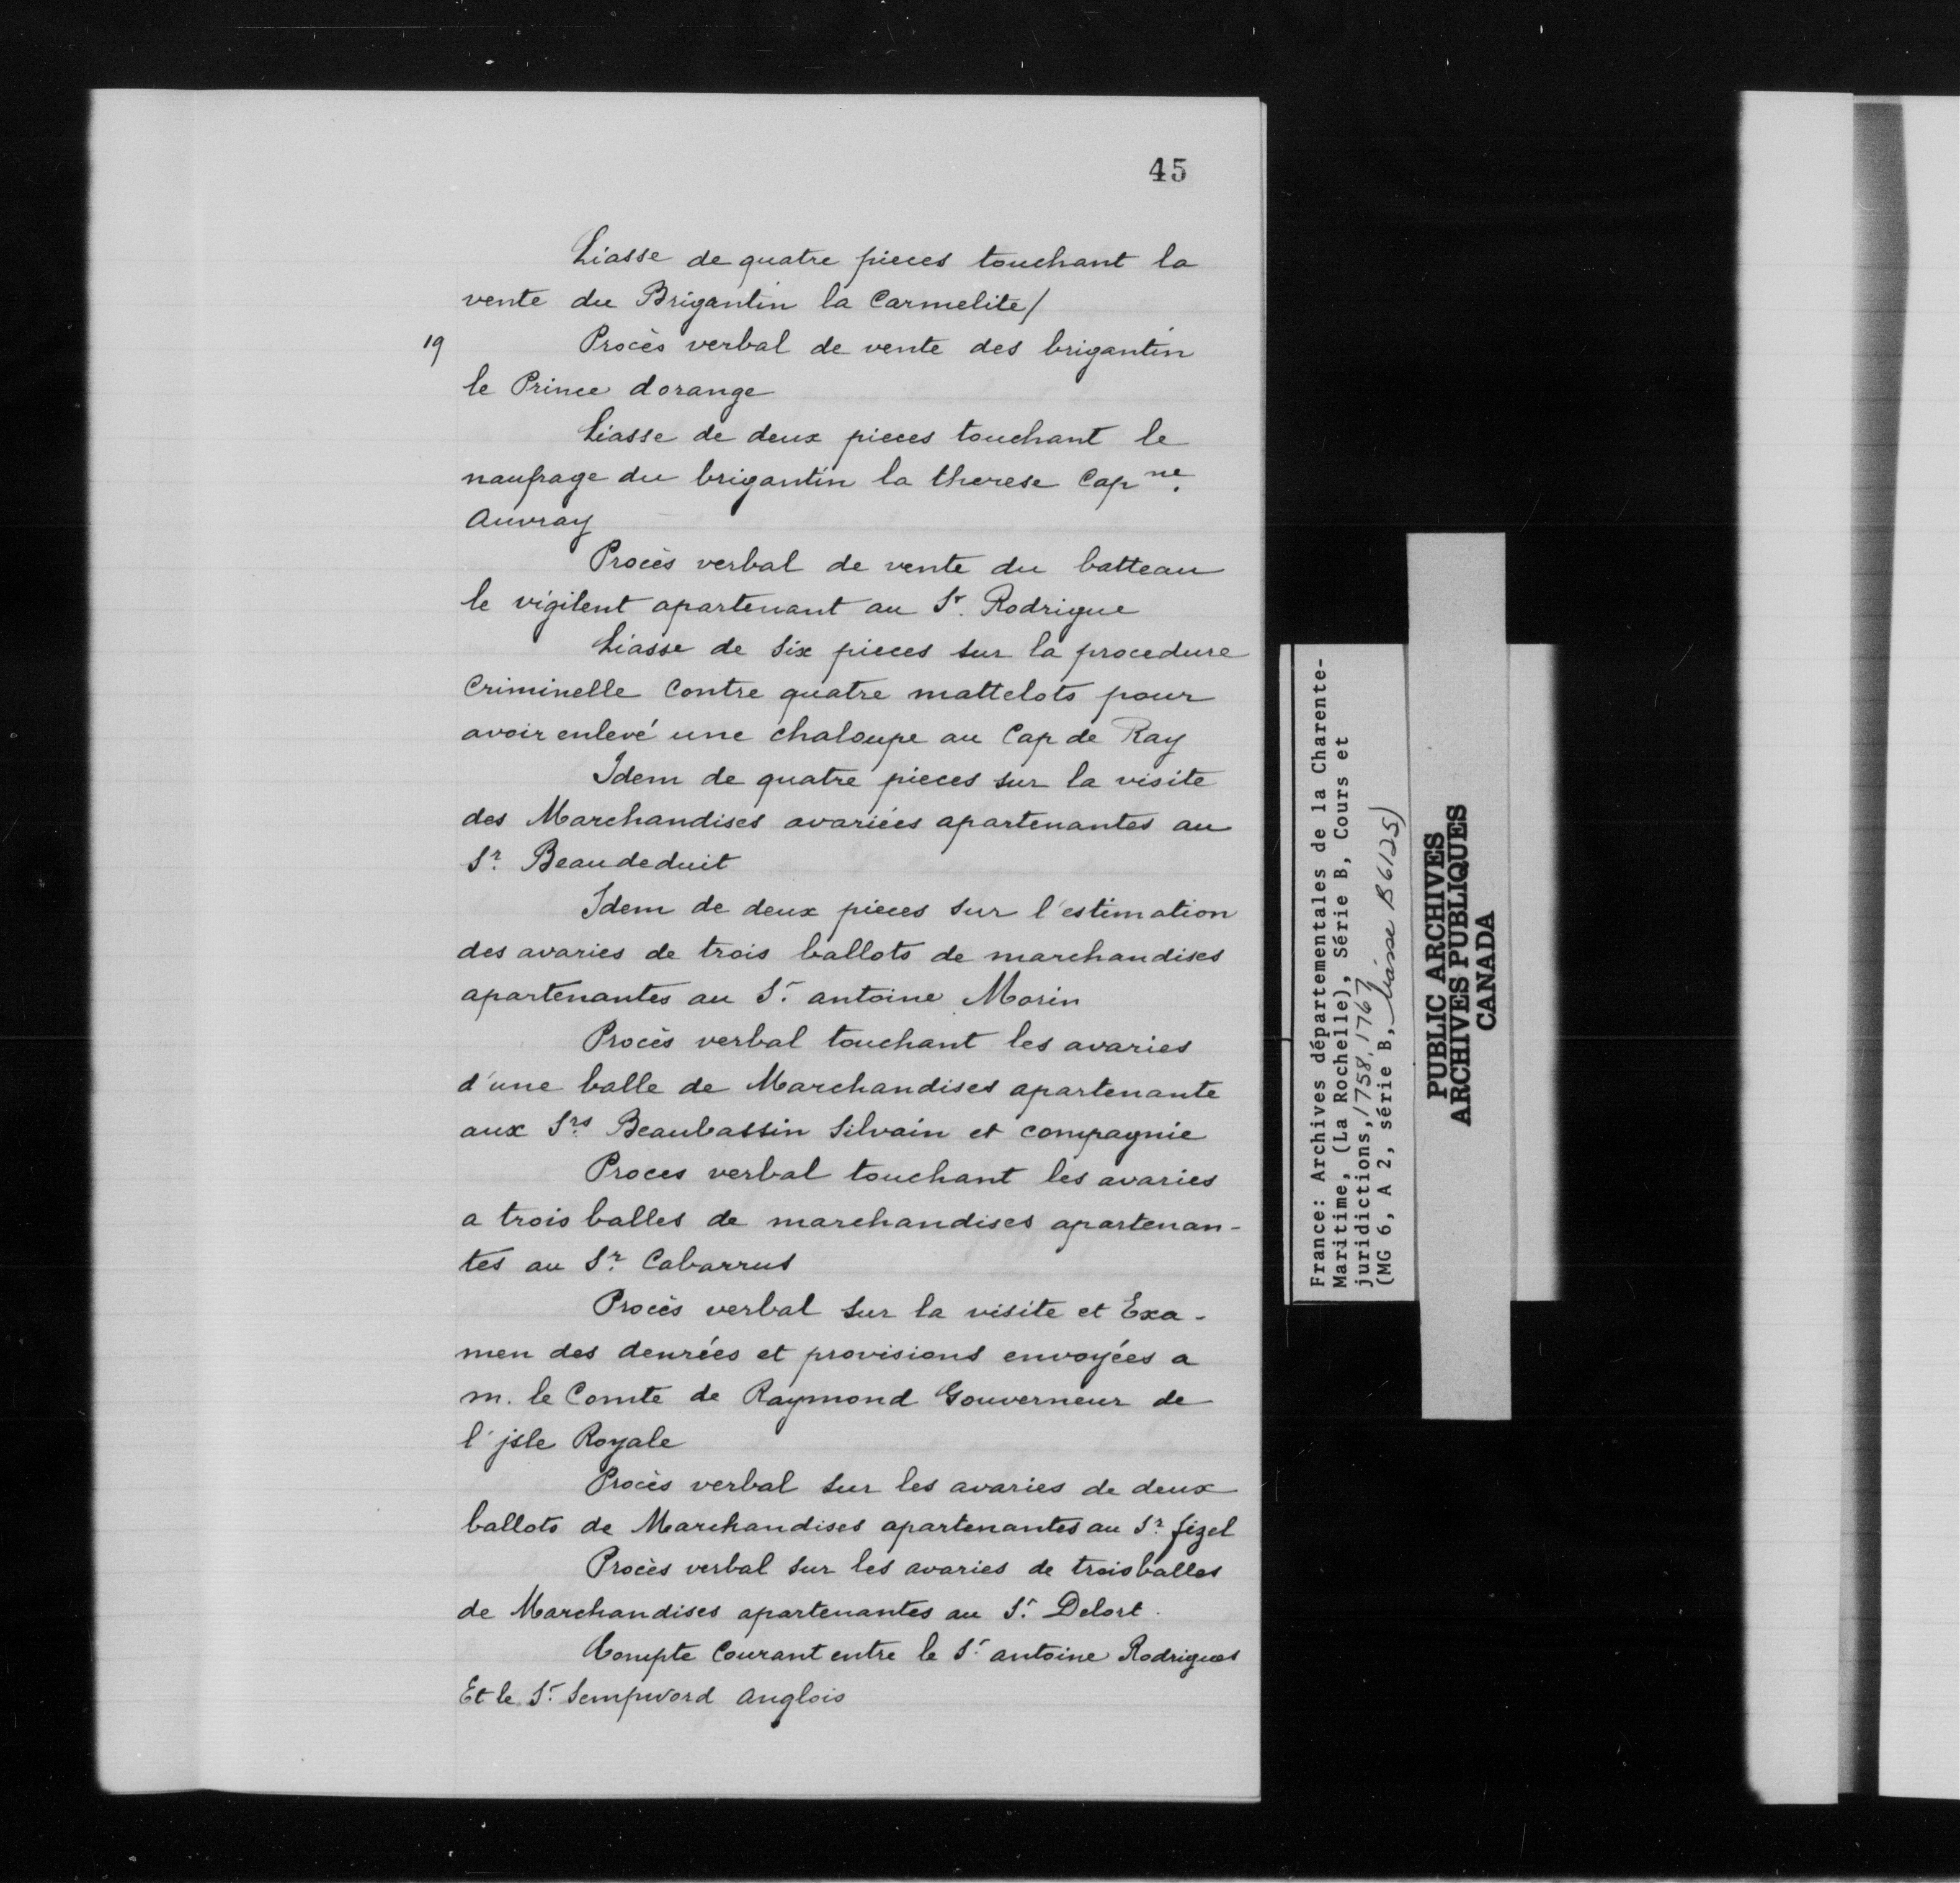 45
Liasse de quatre pieces touchant la
vente du Brigantin la Carmelite/
19
Procès verbal de vente des brigantin
le Prince dorange
Liasse de deux pieces touchant le
naufrage du brigantin la therese Cap ne.
Auvray
Procès verbal de vente du batteau
le vigilent apartenant au Sr. Rodrigue
Liasse de six pieces sur la procedure
Criminelle Contre quatre mattelots pour
avoir enlevé une chaloupe au Cap de Ray
Idem de quatre pieces sur la visite
des Marchandises avariées apartenantes au
Sr. Beaudeduit
Idem de deux pieces sur l'estimation
des avaries de trois ballots de marchandises
apartenantes au Sr. antoine Morin
Procès verbal touchant les avaries
d'une balle de Marchandises apartenante
aux Srs. Beaubassin Silvain et compagnie
Proces verbal touchant les avaries
a trois balles de marchandises apartenan-
tes au Sr. Cabarrus
Procès verbal sur la visite et Exa-
men des denrées et provisions envoyées a
m. le Comte de Raymond Gouverneur de
l'jsle Royale
Procès verbal sur les avaries de deux
ballots de Marchandises apartenantes au Sr. fizel
Procès verbal sur les avaries de trois balles
de Marchandises apartenantes au Sr. Delort.
Compte Courant entre le Sr. antoine Rodrigues
Et le Sr. Sempword anglois
France: Archives départementales de la Charente-
Maritime, (La Rochelle), Série B, Cours et
juridictions, 1758, 1767
(MG 6, A 2, série B, liasse B6125)
PUBLIC ARCHIVES
ARCHIVES PUBLIQUES
CANADA